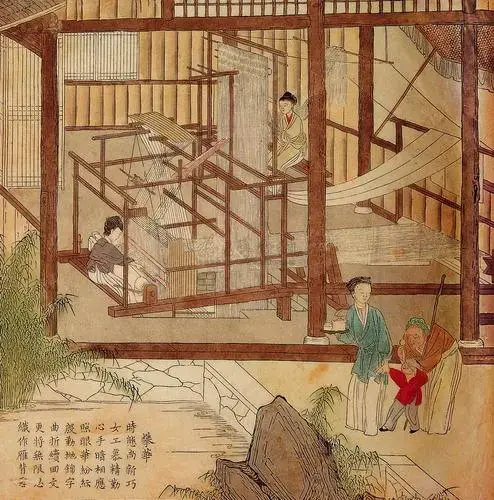 攀華
時態尚新巧
女工慕精勤
心手暗相應
照眼華紛紜
殷勤挑錦字
曲折續回文
更將無限思
織作雁背雲